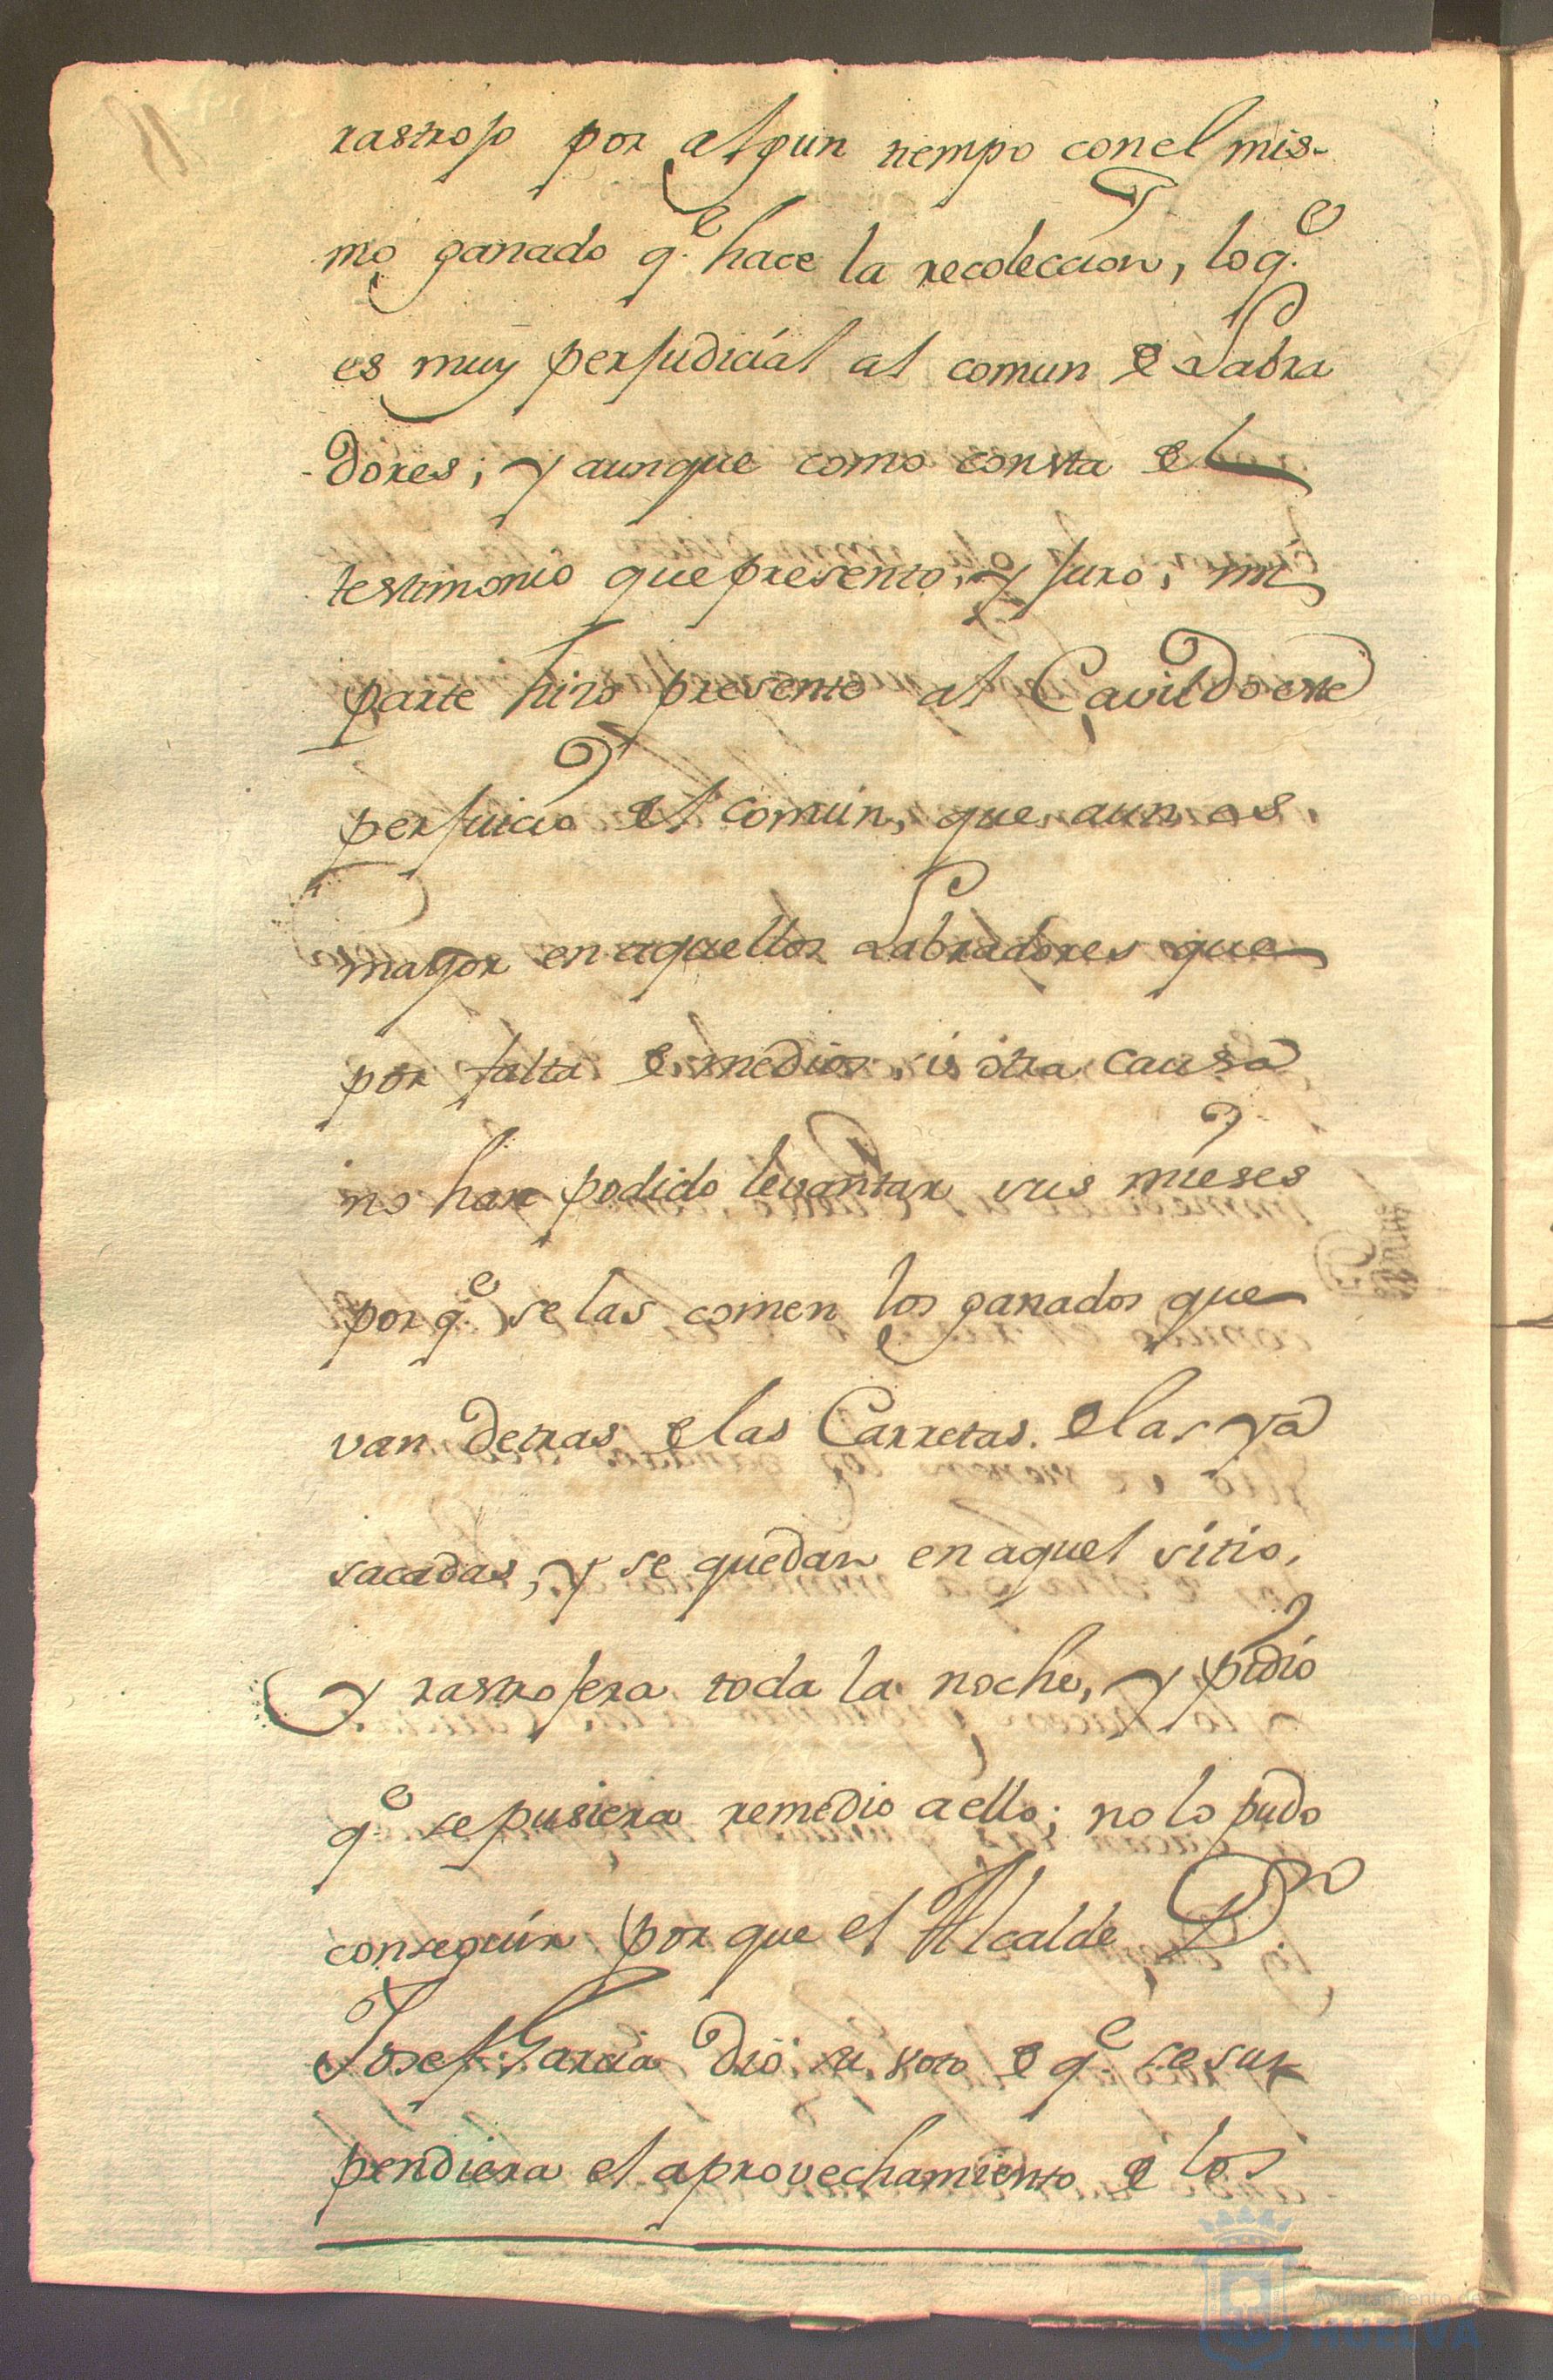 rastrojo por algun tiempo con el mis-
mo ganado q.e hace la recoleccion, lo q.e
es muy perjudicial al comun de Labra
-dores; y aunque como consta del
testimonio que presento, y juro, mi
parte hizo presente al Cavildo este
perjuicio del comun, que aun es
mayor en aquellos Labradores que
por falta de medios, ù otra causa
no han podido levantar sus mieses
por q.e se las comen los ganados que
van detras de las Carretas de las ya
sacadas, y se quedan en aquel sitio,
y rastrojera toda la noche, y pidió
q.e se pusiera remedio a ello; no lo pudo
conseguir por que el Alcalde D.n
Josef Garcia dió su voto de q.e se sus
pendiera el aprovechamiento de los
Ayuntamiento de
HUELVA